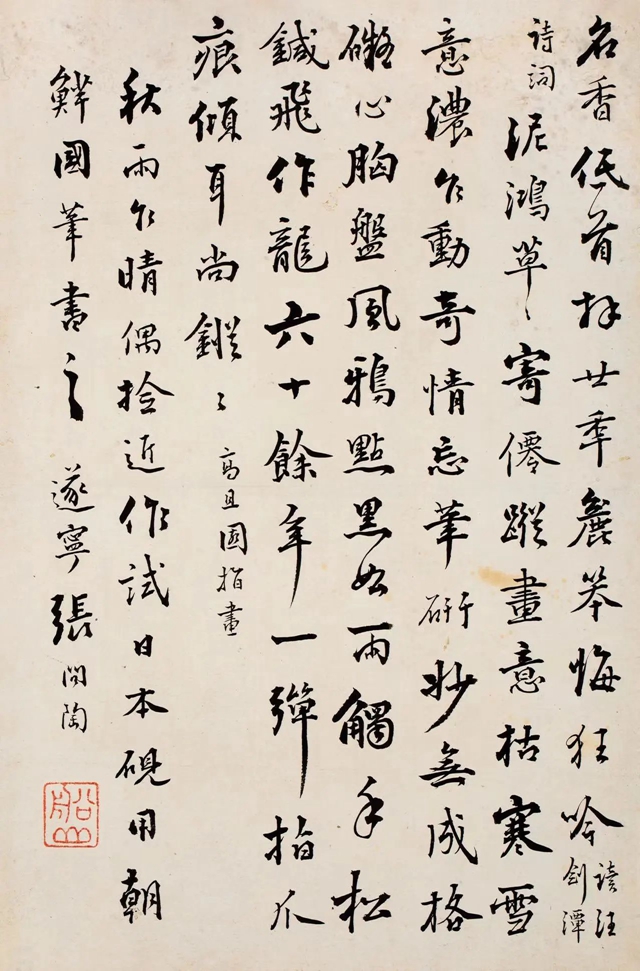 名香低首拜廿年麤笨悔狂吟讀汪劍潭
詩詞泥鴻草〻寄僊蹤畫意枯寒雪
意濃乍動奇情忘筆研妙無成格
礙心胸盤風鴉點黑如雨觸手松
鍼飛作龍六十餘年一彈指爪
痕傾耳尚鏦〻高且園指畫
秋雨乍晴偶撿近作試日本硯用朝
鮮國筆書之遂寧張問陶
船山